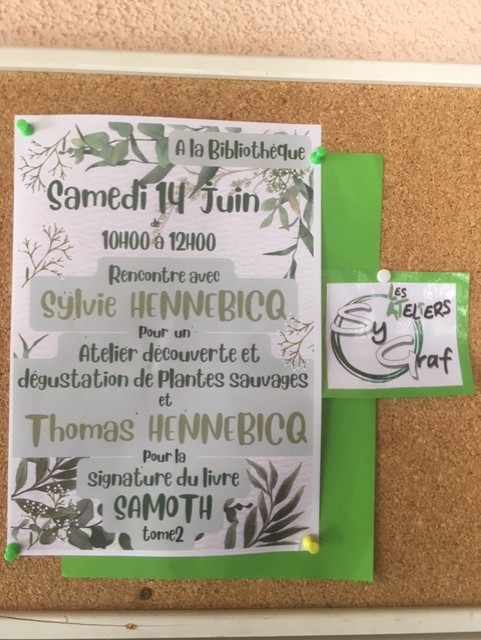 A la Bibliothèque
Samedi 14 juin
10H00 à 12H00
Rencontre avec
Sylvie HENNEBICQ
Pour un
Atelier découverte et
dégustation de Plantes sauvages
et
Thomas HENNEBICQ
Pour la
signature du livre
SAMOTH
tome2
LES
ATELIERS
Sy
Graf